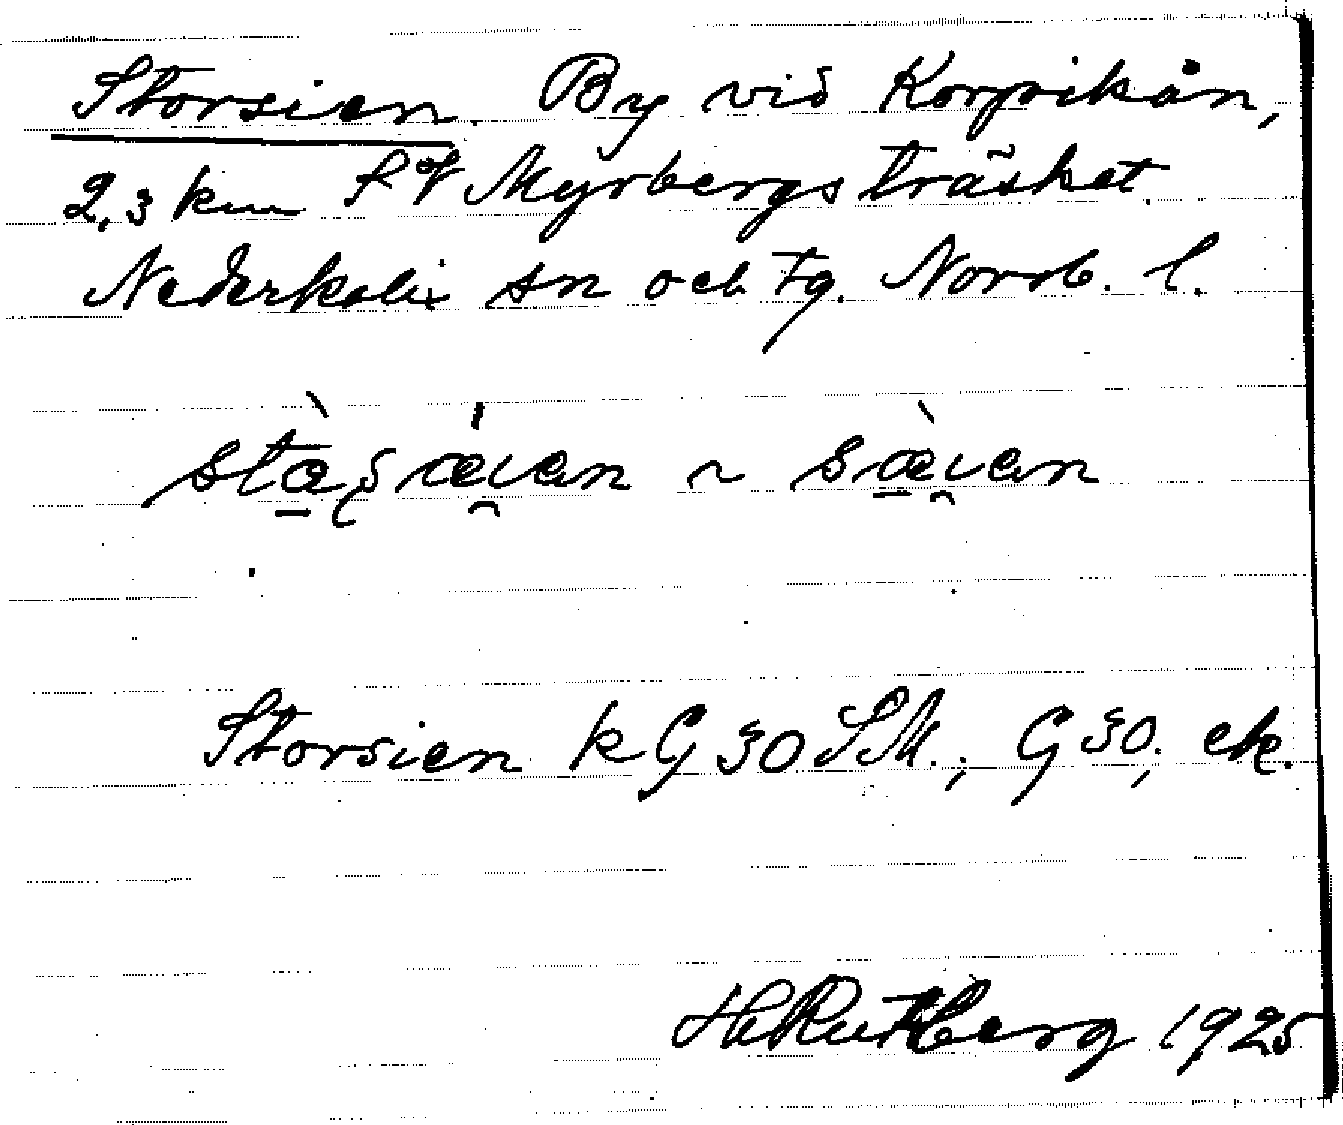 Storsien. By vid Korpikån,
2,3 km SV Myrbergsträsket.
Nederkalix sn och tg. Norrb. l.
Storsien k G 30 SM.; G 30, ek.
H Rutberg 1925